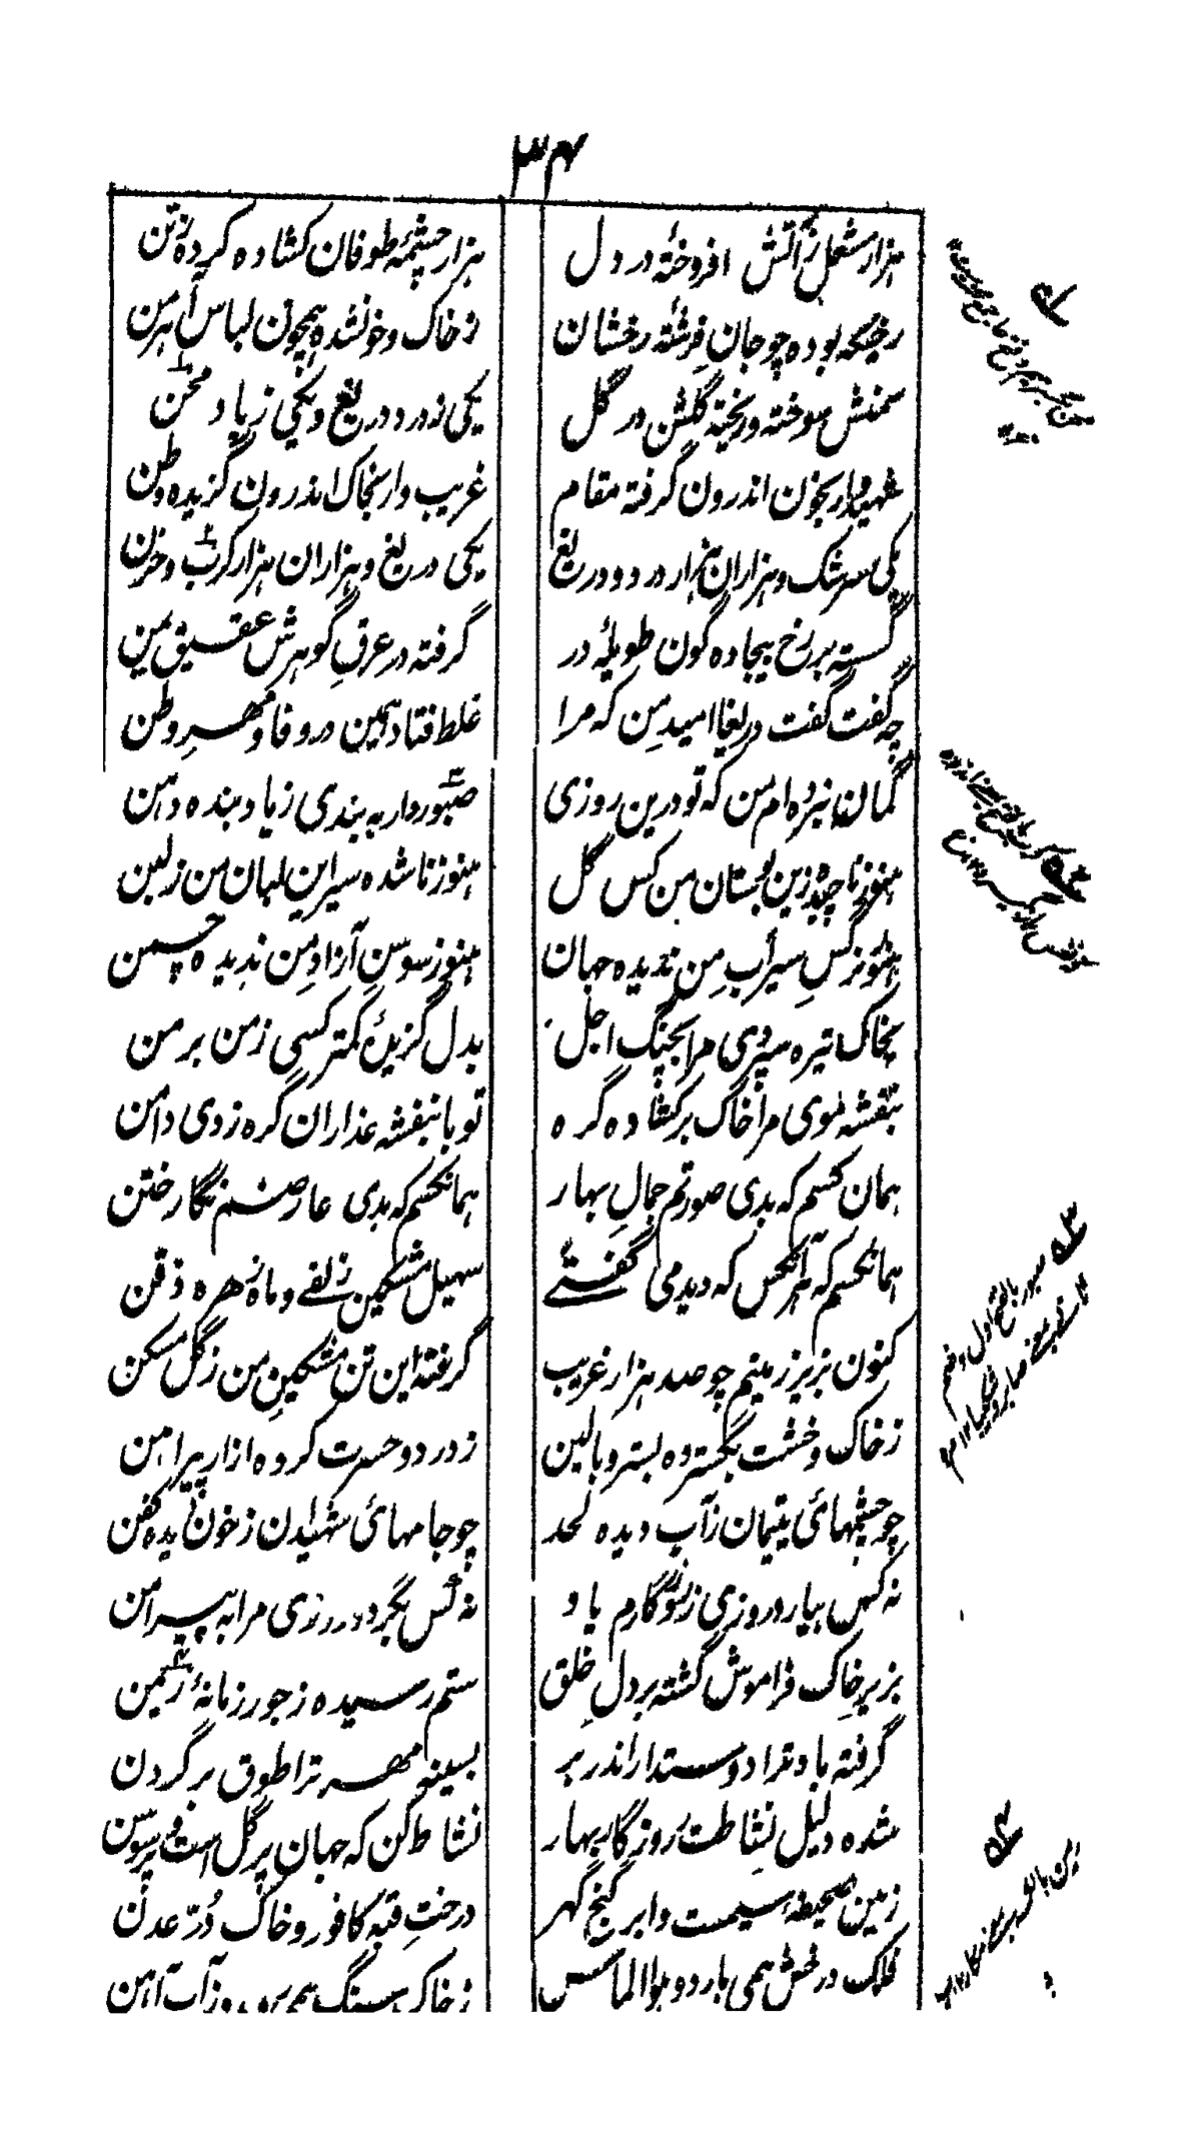 ۳۴
هزار مشعل ز آتش افروخته در دل هزار چشمه طوفان کشاده کرده ز تن
رخیکه بوده چو جان فرشته رخشان ز خاک و خون شده همچون لباس آهرمن
سمنش سوخته و ریخته گلشن در گل یکی ز درد دریغ و یکی ز یاد محن
شهیدوار بخون اندرون گرفته مقام غریب وار بخاک اندرون گزیده وطن
یکی سرشک و هزاران هزار درد و دریغ یکی دریغ و هزاران هزار کرب و حزن
گسسته بر رخ بیجاده گون طویلهٔ در گرفته در عرق گوهرش عقیق یمن
چه گفت گفت دریغا امید من که مرا غلط فتاد همین در وفا و مهر وطن
گمان نبرده ام من که تو درین روزی صبور وار به بندی ز یاد بنده دهن
هنوز نا چده زین بوستان من کس گل هنوز نا شده سیر این لبان من ز لبن
هنوز نرگس سیراب من ندیده جهان هنوز سوسن آزاد من ندیده چمن
بخاک تیره سپردی مرا بچنگ اجل بدل گزیدهٔ کمتر کسی ز من بر من
بنفشه موی مرا خاک بر کشاده گره تو با بنفشه عذاران گره زدی دامن
همان کسم که بدی صورتم جمال بهار همانکسم که بدی عارضم نگار ختن
همانکسم که هر آنکس که دیدمی گفتے سهیل مشکین زلفے و ماه زهره ذقن
کنون بزیر زمینم چو صد هزار غریب گرفته این تن مشکین من ز گل مسکن
ز خاک و خشت بگسترده بستر و بالین ز درد و حسرت کرده ازار پیراهن
چو چشمهائی یتیمان ز آب دیده لحد چو جامهائی شهیدان ز خون دیده کفن
نه کس بیارد روزی ز روزگارم یاد نه کس بگردد روزی مرا به پیرامن
بزیر خاک فراموش گشته بر دل خلق ستم رسیده ز جور زمانهٔ ریمن
گرفته یاد ترا دوستدار اندر بر بسینه مهر ترا طوق بر گردن
شده دلیل نشاطت روزگار بهار نشاط کن که جهان پر گل است و پر سوسن
زمین صحیفه سیمست و ابر گنج گهر درخت قبه کافور و خاک درّ عدن
فلک درخش همی بارد و هوا الماس ز خاک سنگ همی روید و ز آب آهن